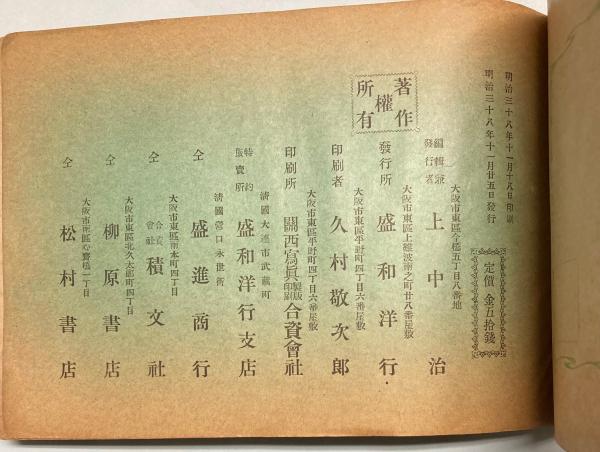 明治三十八年十一月十八日印刷
明治三十八年十一月廿五日發行
定價 金五拾錢
著作權所有
大阪市東區今橋五丁目八番地
編輯兼發行者 上中治
大阪市東區上難波南之町廿八番屋敷
發行所 盛和洋行
大阪市東區平野町四丁目六番屋敷
印刷者 久村敬次郎
大阪市東區平野町四丁目六番屋敷
印刷所 關西寫眞製版印刷合資會社
清國大連市武藏町
特約販賣所 盛和洋行支店
清國營口永世街
仝 盛進商行
大阪市東區南本町四丁目
仝 合資會社積文社
大阪市東區北久太郎町四丁目
仝 柳原書店
大阪市南區心齋橋一丁目
仝 松村書店